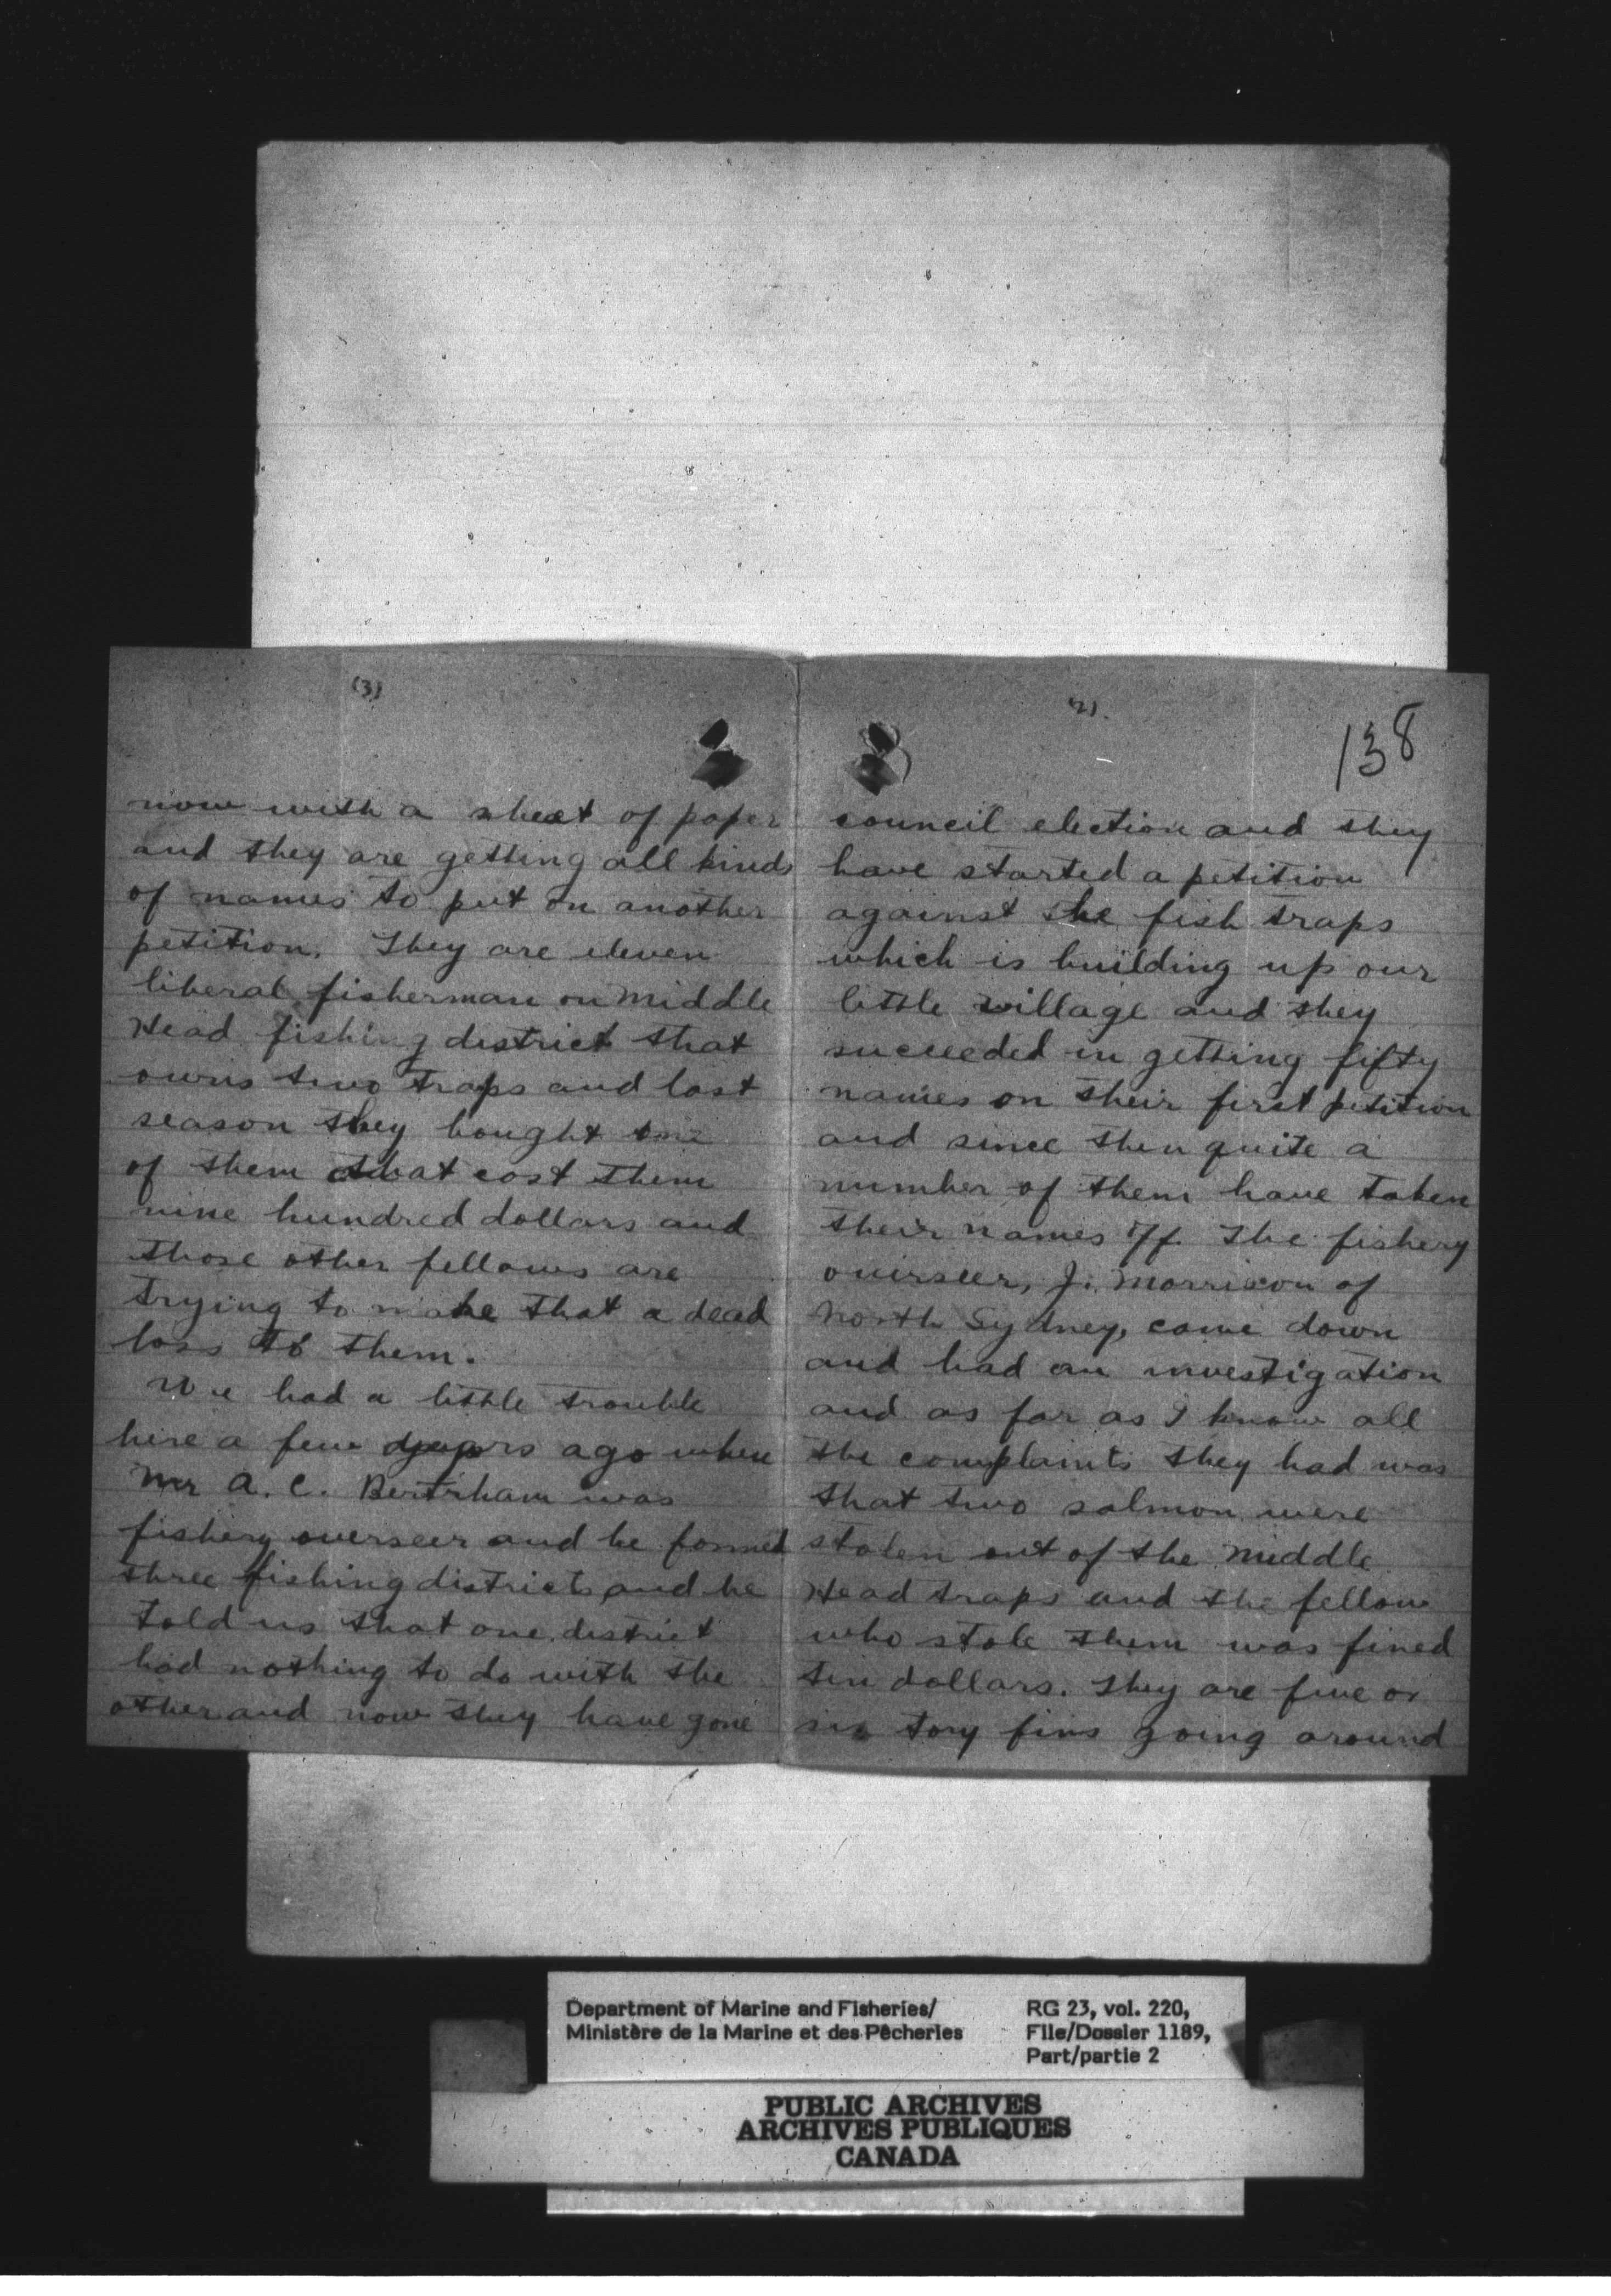 (3)
now with a sheet of paper
and they are getting all kinds
of names to put on another
petition. They are eleven
liberal fisherman on Middle
Head fishing district that
owns two traps and last
season they bought one
of them that cost them
nine hundred dollars and
those other fellows are
trying to make that a dead
loss to them.
We had a little trouble
here a few years ago when
Mr A. C. Bertrham was
fishery overseer and he formed
three fishing districts and he
told us that one district
had nothing to do with the
other and now they have gone
(2)
138
council election and they
have started a petition
against the fish traps
which is building up our
little village and they
succeeded in getting fifty
names on their first petition
and since then quite a
number of them have taken
their names off. The fishery
overseer, J. Morrison of
North Sydney, come down
and had an investigation
and as far as I know all
the complaints they had was
that two salmon were
stolen out of the Middle
Head traps and the fellow
who stole them was fined
ten dollars. They are five or
six tory fins going around
Department of Marine and Fisheries/
Ministère de la Marine et des Pêcheries
RG 23, vol. 220,
File/Dossier 1189,
Part/partie 2
PUBLIC ARCHIVES
ARCHIVES PUBLIQUES
CANADA